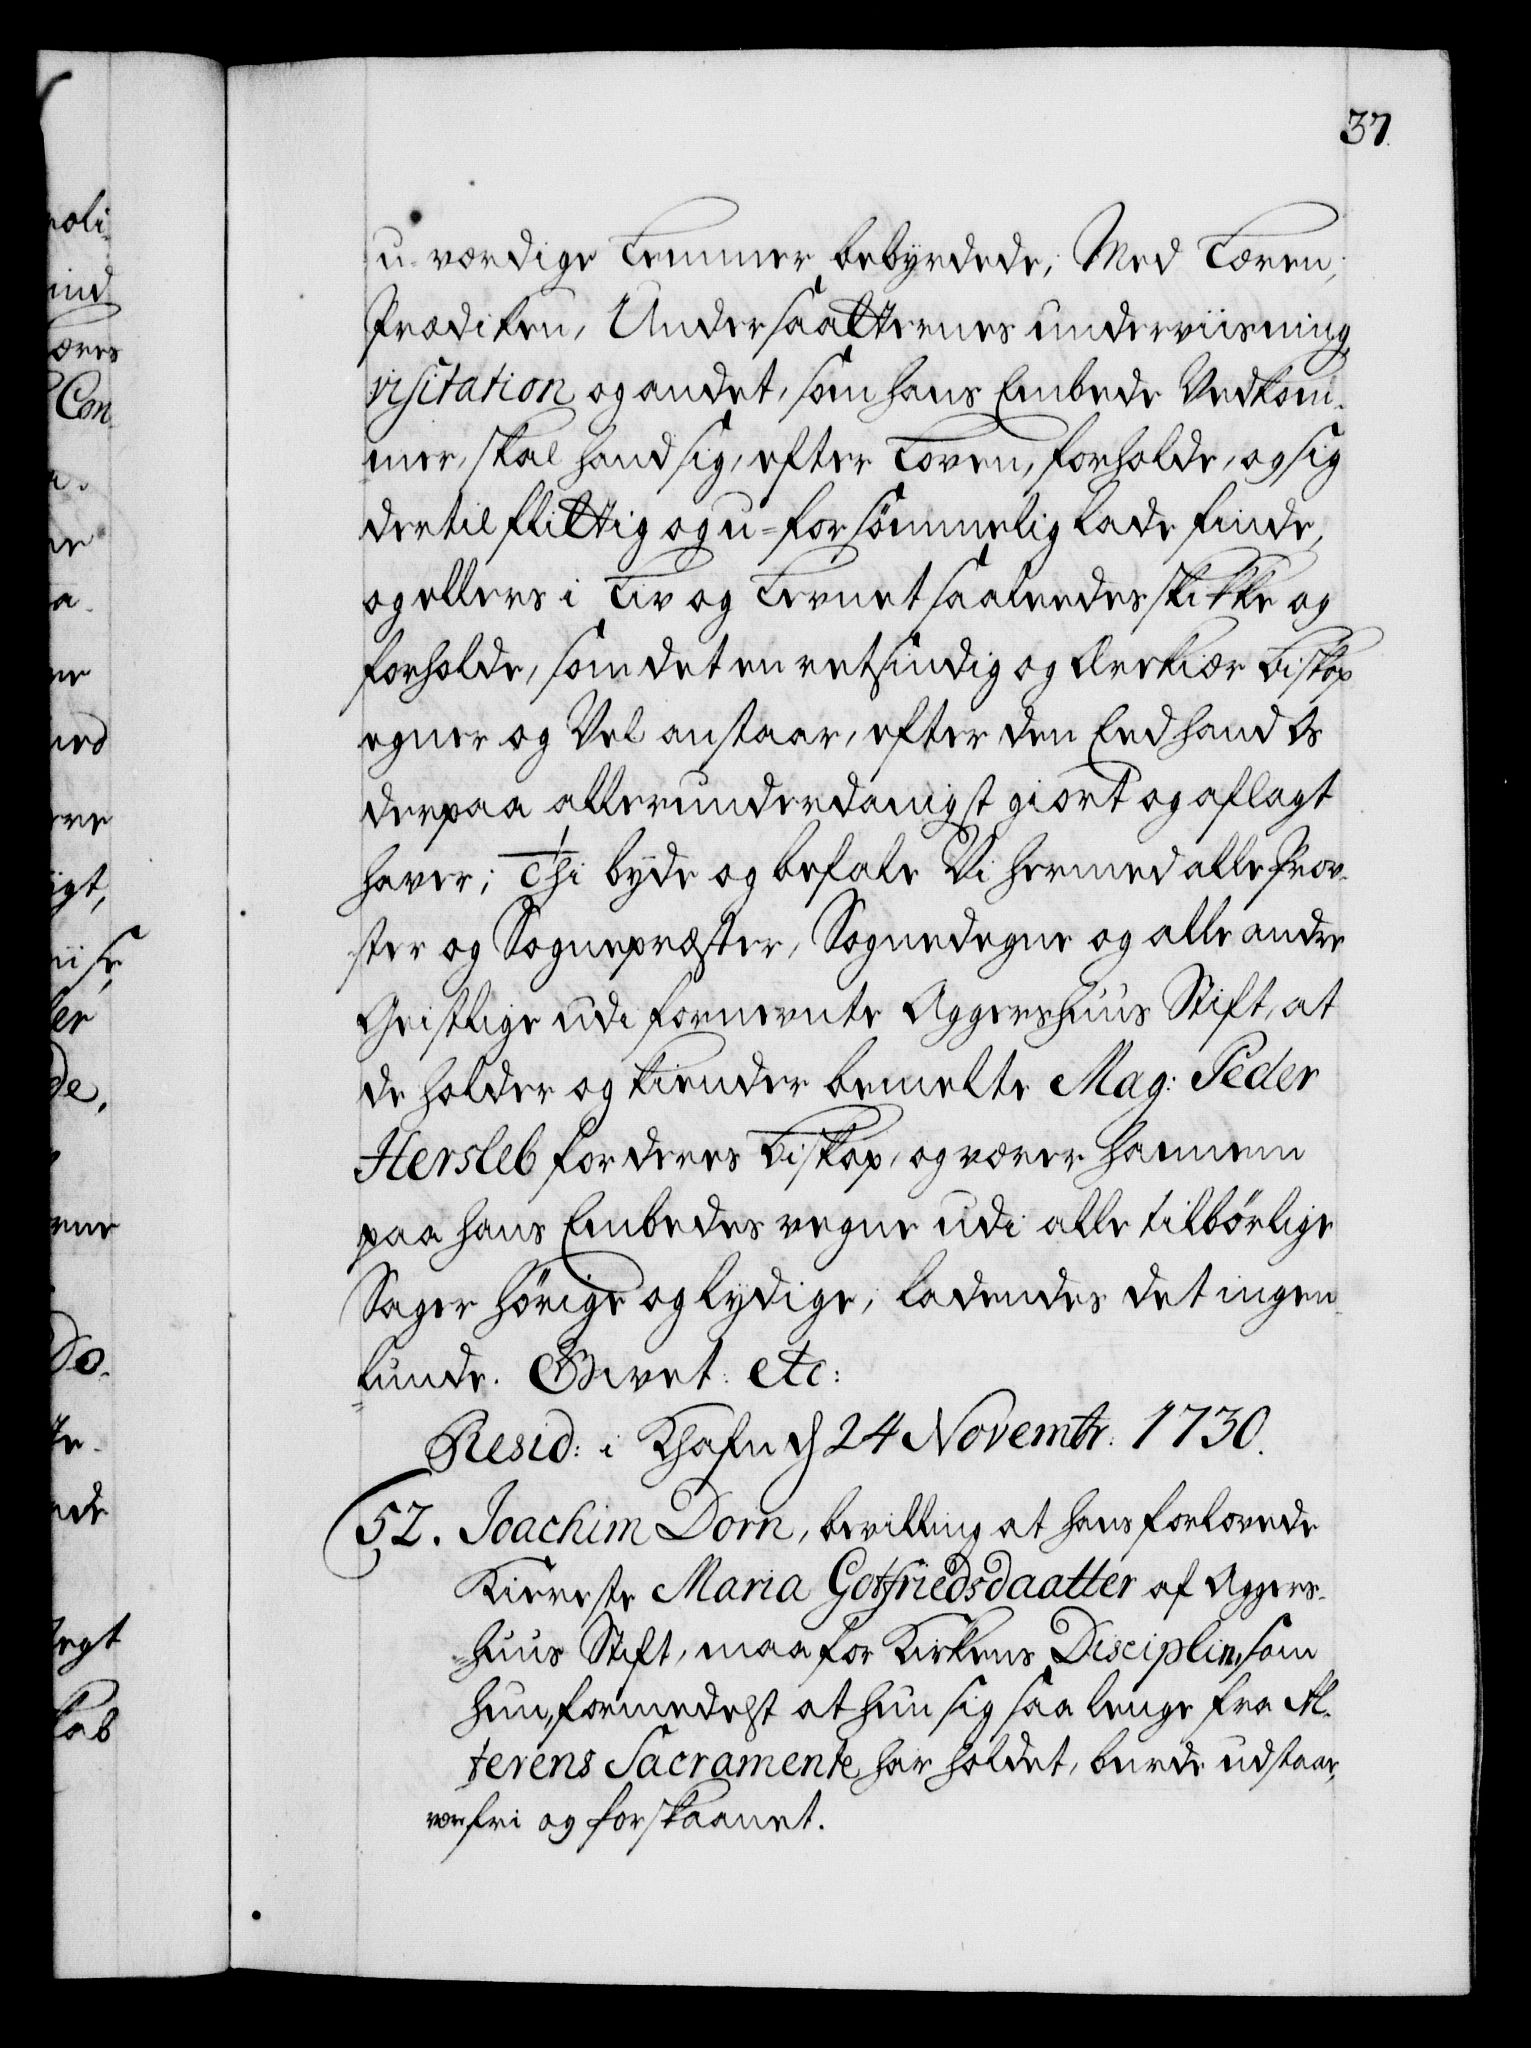 37.
u-værdige Lemmer bebyrdede; Med Læren,
Prædiken, Undersaatternes underviisning,
visitation og andet, som hans Embede Vedkom-
mer, skal hand sig, efter Loven, forholde, og sig
dertil flittig og u-forsømmelig lade finde,
og ellers i Liv og Levnet saaledes skikke og
forholde, som det en retsindig og Ærekiær Biskop
egner og Vel anstaar, efter den Eed hand Os
derpaa allerunderdanigst giort og aflagt
haver; Thi byde og befale Vi hermed alle Prov-
ster og Sognepræster, Sognedegne og alle andre
Geistlige udi fornevnte Aggershuus Stift, at
de holder og kiender bemelte Mag: Peder
Hersleb for deres Biskop, og værer hannem
paa hans Embedes vegne udi alle tilbørlige
Sager hørige og lydige; ladendes det ingen-
lunde. Givet: etc:
Resid: i Khafn d 24 Novembr: 1730.
52. Joachim Dorn, bevilling at hans forlovede
Kiereste Maria Gotfriedsdaatter af Aggers-
huus Stift, maa for Kirkens Disciplin, som
hun, formedelst at hun sig saa lenge fra Al-
terens Sacramente har holdet, burde udstaae,
være fri og forskaanet.